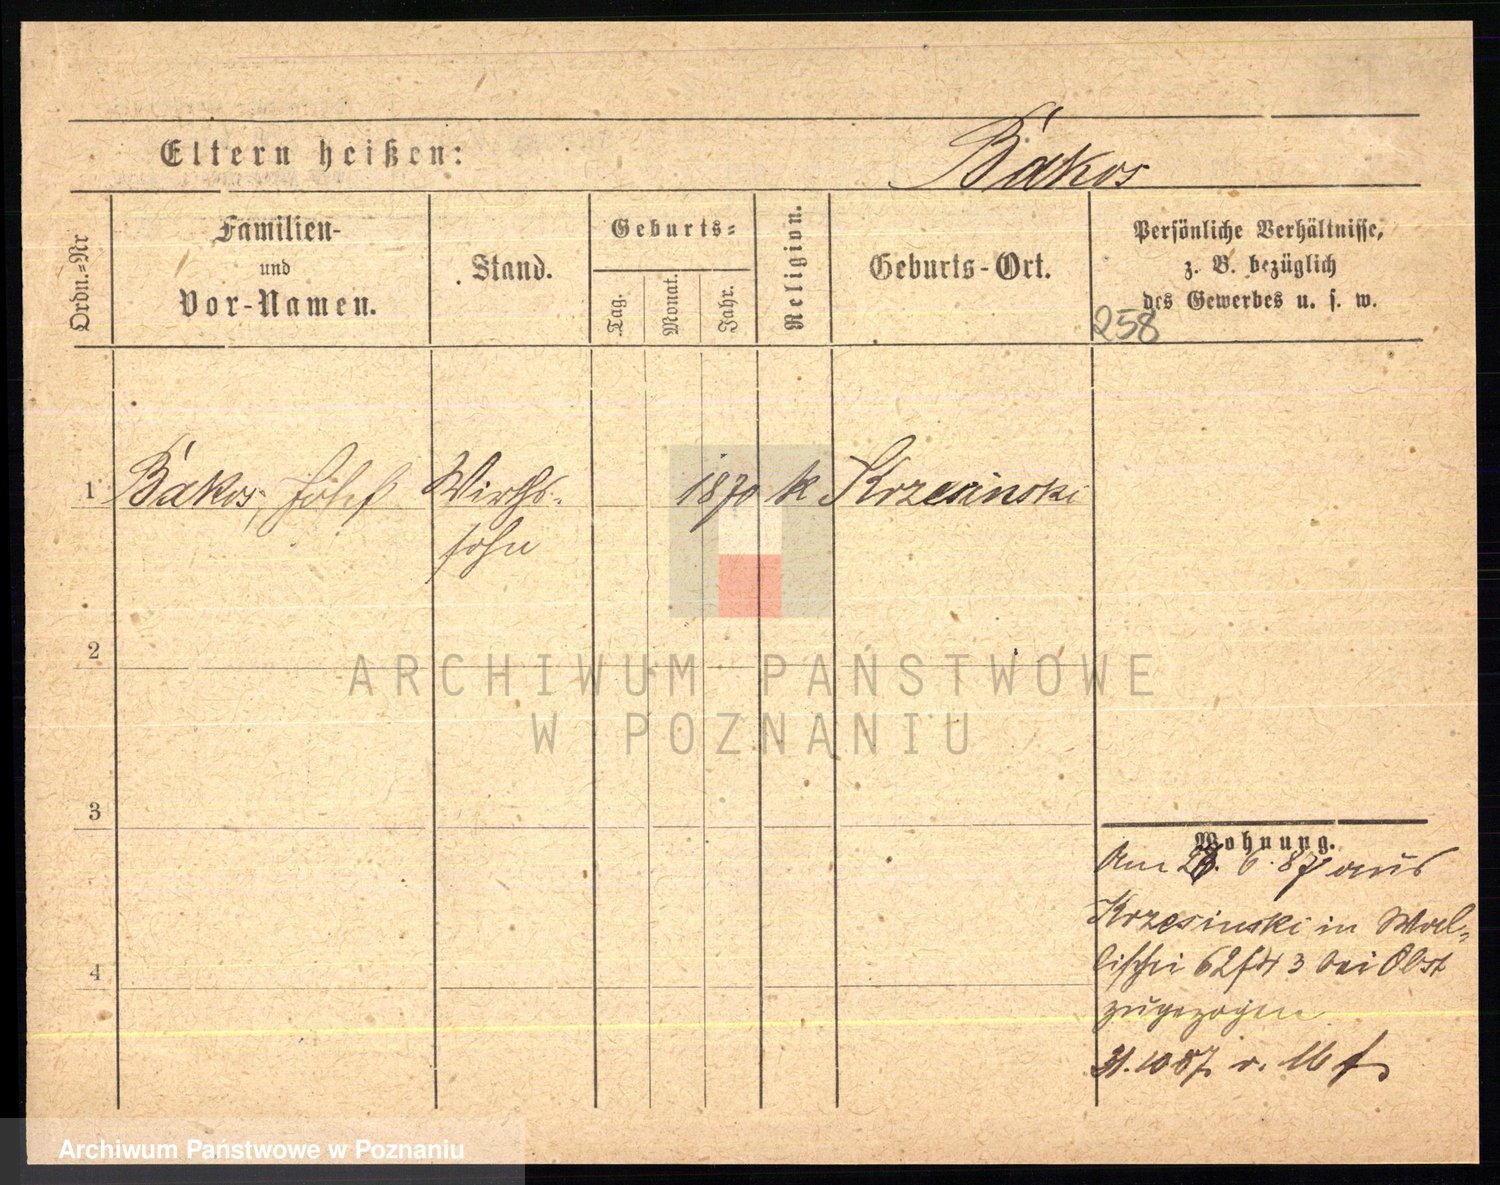 Eltern heißen:
Bakos
Ordn.=Nr
Familien-
und
Vor-Namen.
Stand.
Geburts=
Tag.
Monat.
Jahr.
Religion.
Geburts-Ort.
Persönliche Verhältnisse,
z. B. bezüglich
des Gewerbes u. s. w.
258
1 Bakos, Josef Wirths- 1870 k Krzesinski
sohn
2
ARCHIWUM PAŃSTWOWE
W POZNANIU
3
Wohnung.
Am 6. 87 aus
Krzesinski in Wal=
lischei 62 3 bei Obst
4
zugezogen
31. 10 87
Archiwum Państwowe w Poznaniu